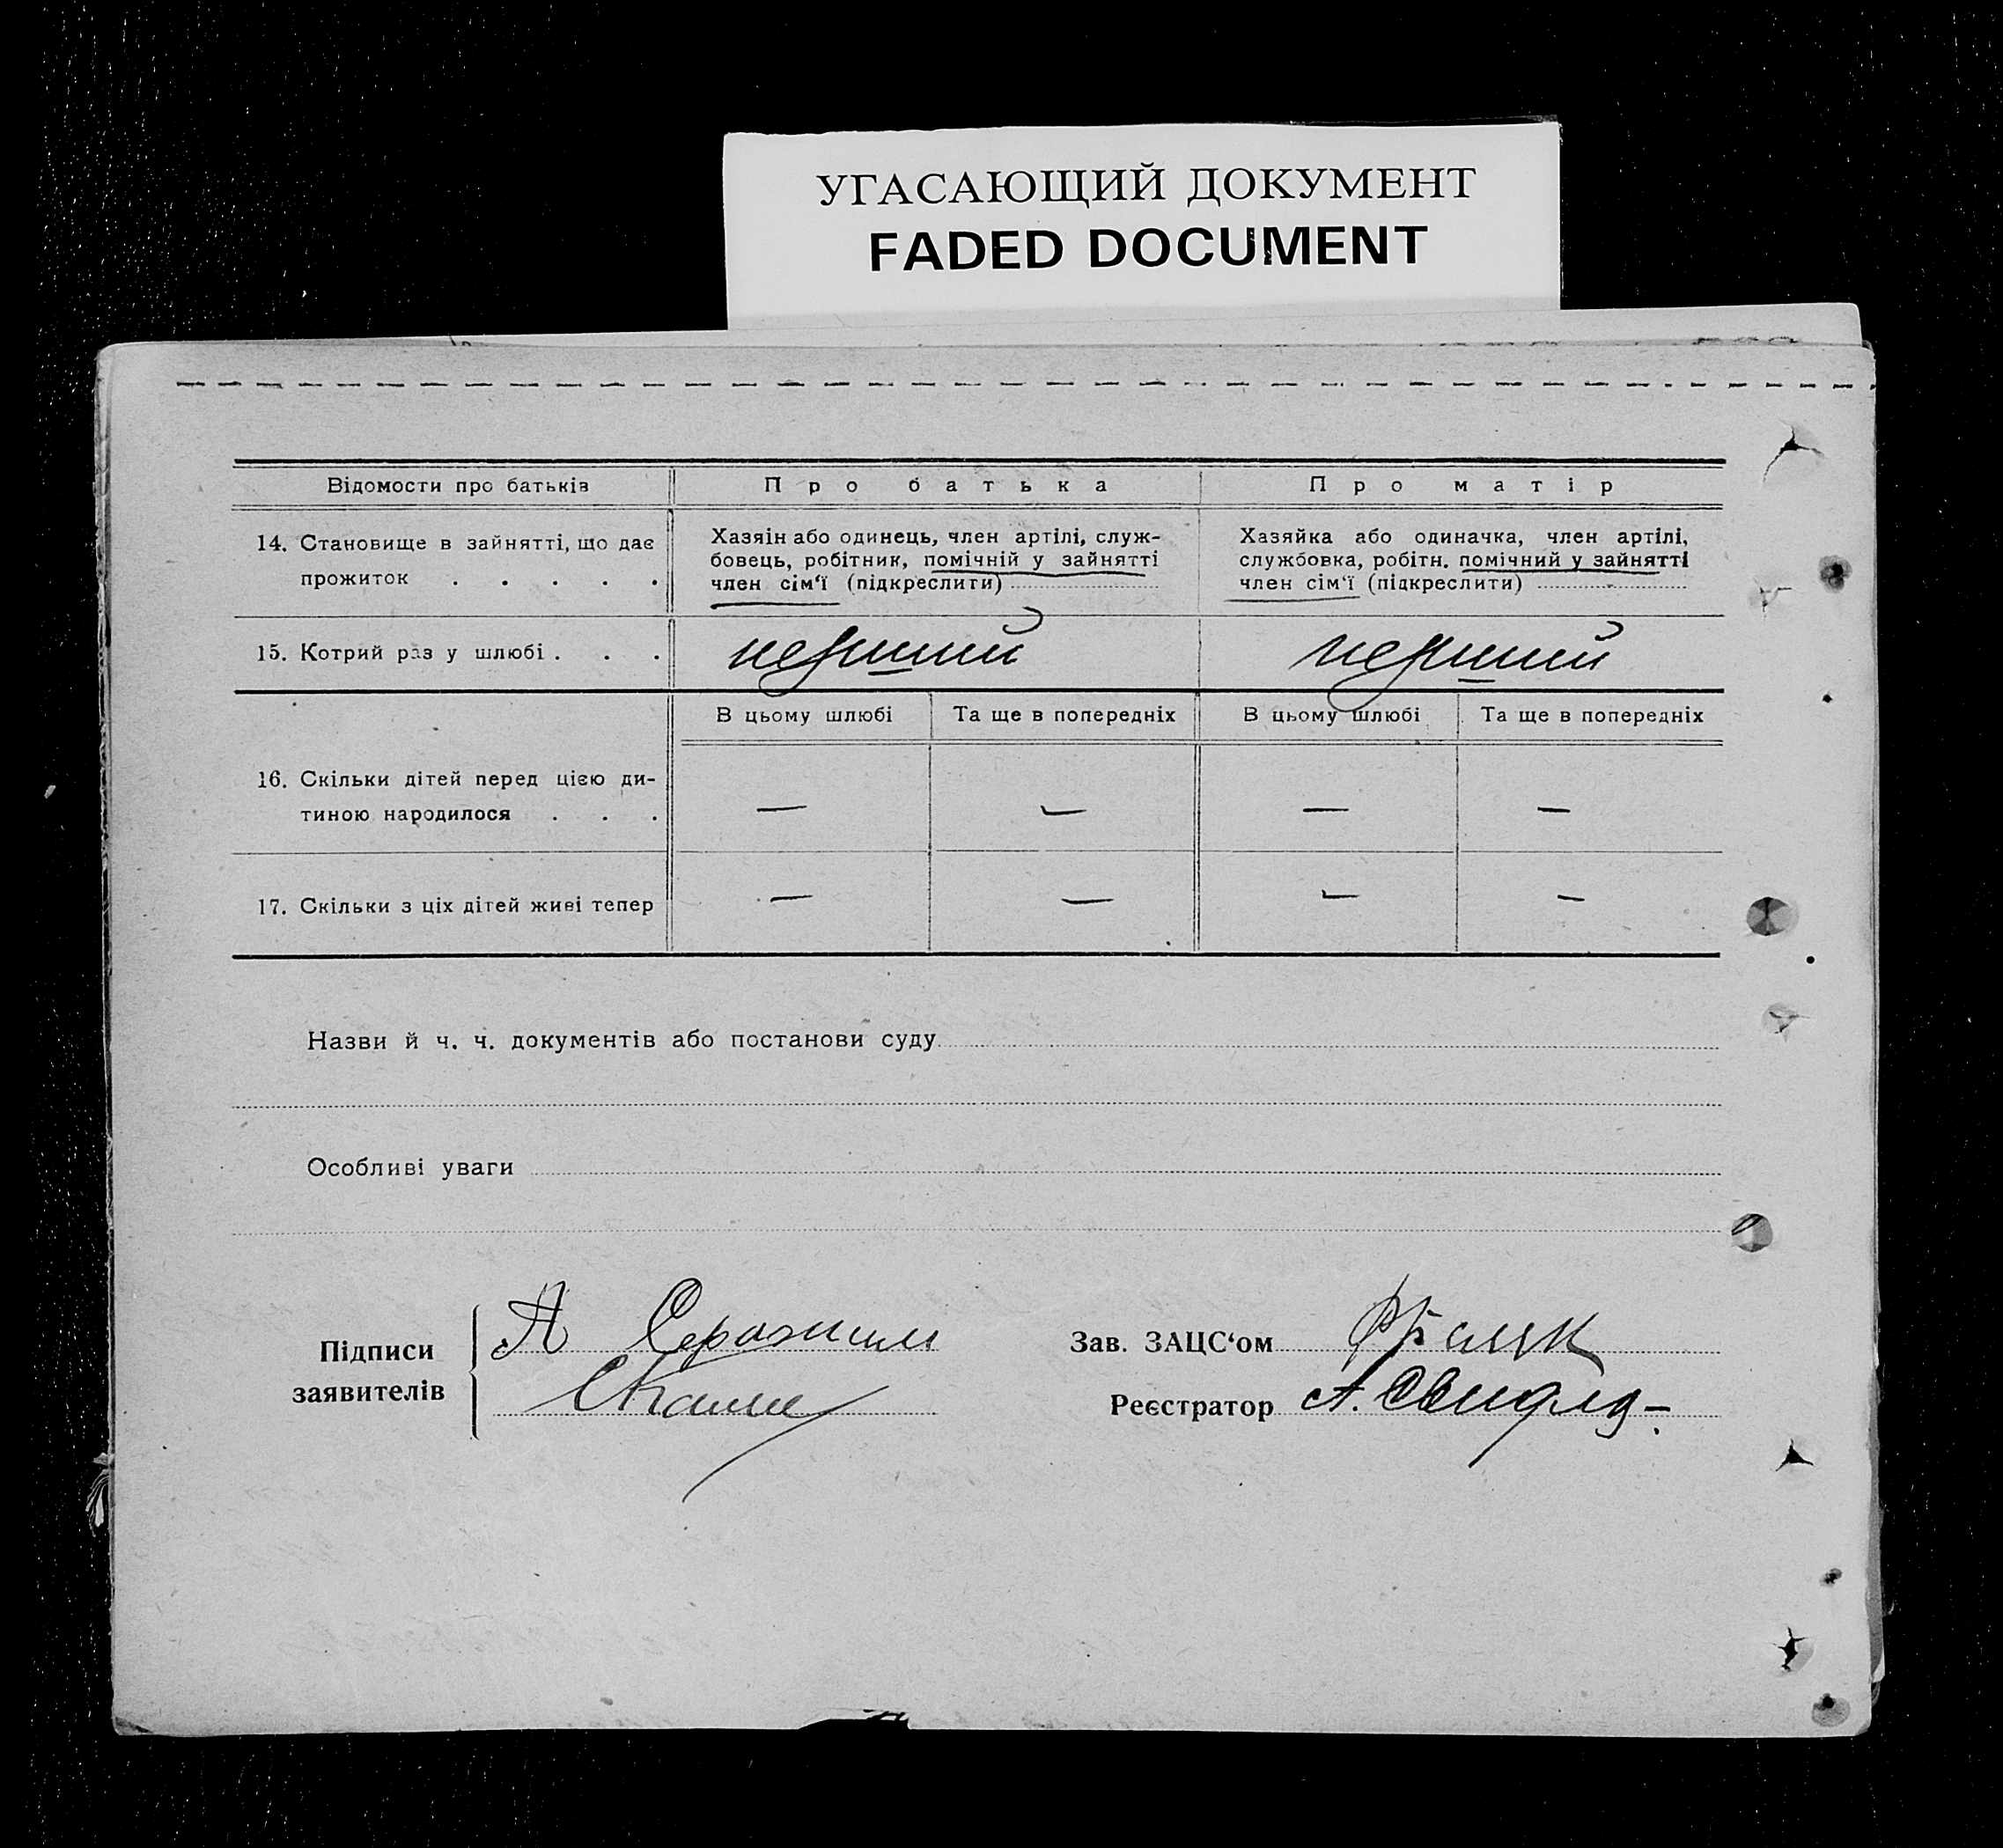 УГАСАЮЩИЙ ДОКУМЕНТ
FADED DOCUMENT
Відомости про батьків
Про батька
Про матір
14. Становище в зайнятті, що дає
прожиток . . . . .
Хазяін або одинець, член артілі, служ-
бовець, робітник, помічній у зайнятті
член сім'ї (підкреслити)
Хазяйка або одиначка, член артілі,
службовка, робітн. помічний у зайнятті
член сім'ї (підкреслити)
15. Котрий раз у шлюбі . . .
перший
перший
В цьому шлюбі
Та ще в попередніх
В цьому шлюбі
Та ще в попередніх
16. Скільки дітей перед цією ди-
тиною народилося . . .
— — — —
17. Скільки з ціх дітей живі тепер
— — — —
Назви й ч. ч. документів або постанови суду
Особливі уваги
Підписи
заявителів
А
Зав. ЗАЦС'ом
Реєстратор А.